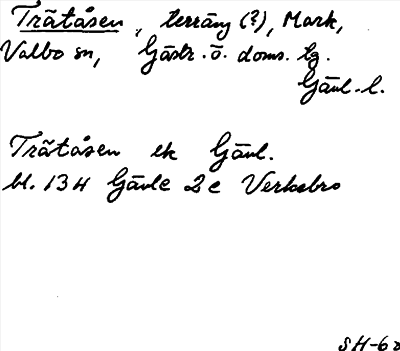 Trätåsen, terräng (?), Mark,
Valbo sn, Gästr. ö. doms. tg.
Gävl. l.
Trätåsen ek Gävl.
bl. 13 H Gävle 2 c Verkebro
SH-62